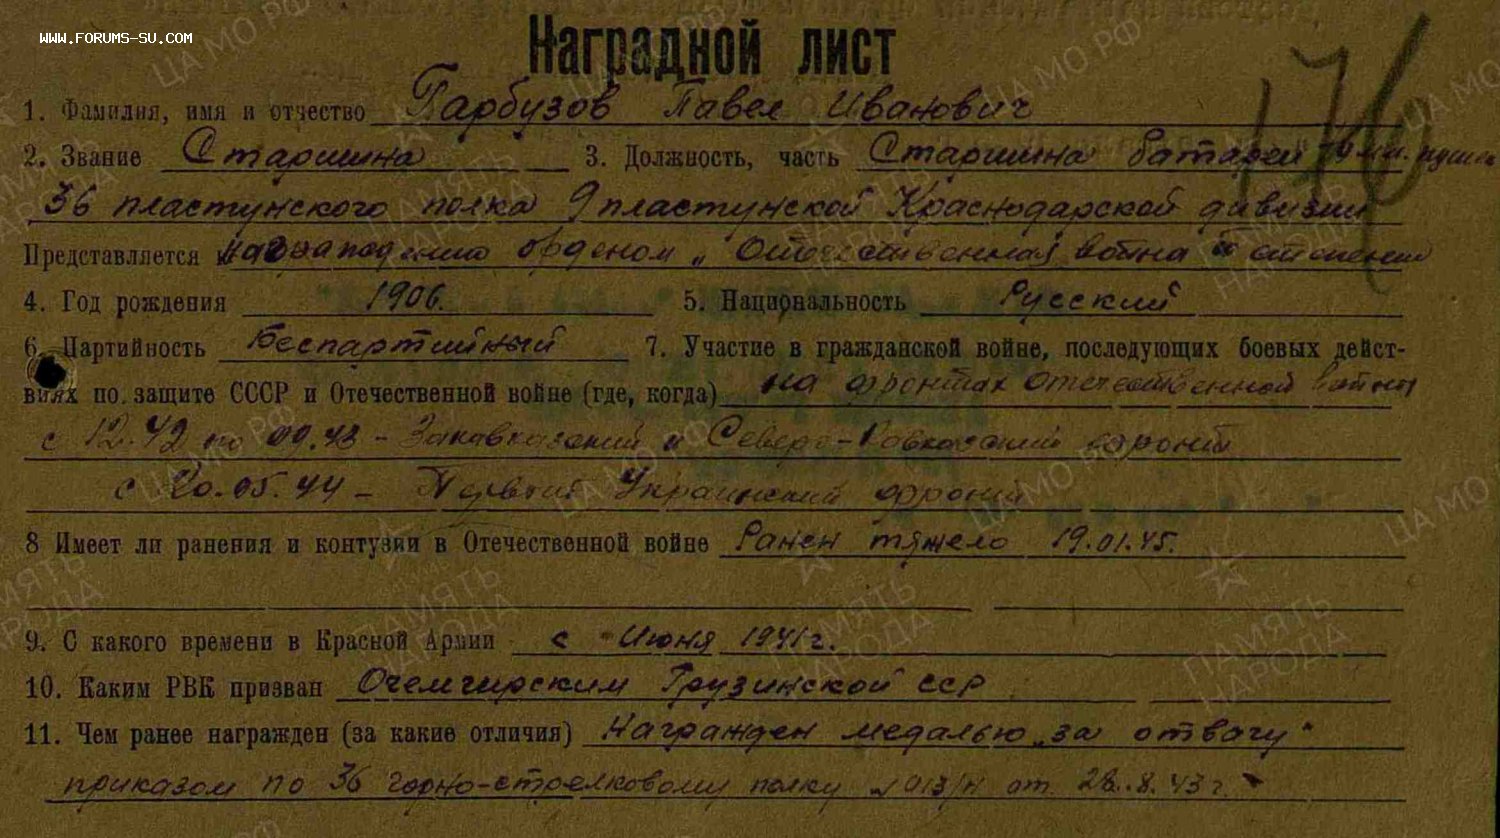 WWW.FORUMS-SU.COM
Наградной лист
176
1. Фамилия, имя и отчество Гарбузов Павел Иванович
2. Звание Старшина 3. Должность, часть Старшина батареи
36 пластунского полка 9 пластунской Краснодарской дивизии
Представляется к орденом „Отечественная война степени
4. Год рождения 1906. 5. Национальность Русский
6. Партийность Беспартийный 7. Участие в гражданской войне, последующих боевых дейст-
виях по защите СССР и Отечественной войне (где, когда) на фронтах Отечественной войны
с 12.42 по 09.43 - Закавказский и Северо-Кавказский фронт
с 20.05.44 - Первый Украинский фронт
8 Имеет ли ранения и контузии в Отечественной войне Ранен тяжело 19.01.45.
9. С какого времени в Красной Армии с Июня 1941 г.
10. Каким РВК призван Очемчирским Грузинской ССР
11. Чем ранее награжден (за какие отличия) Награжден медалью „за отвагу"
приказом по 36 горно-стрелковому полку № 013/н от 28.8.43 г.
ЦА МО РФ
ПАМЯТЬ
НАРОДА